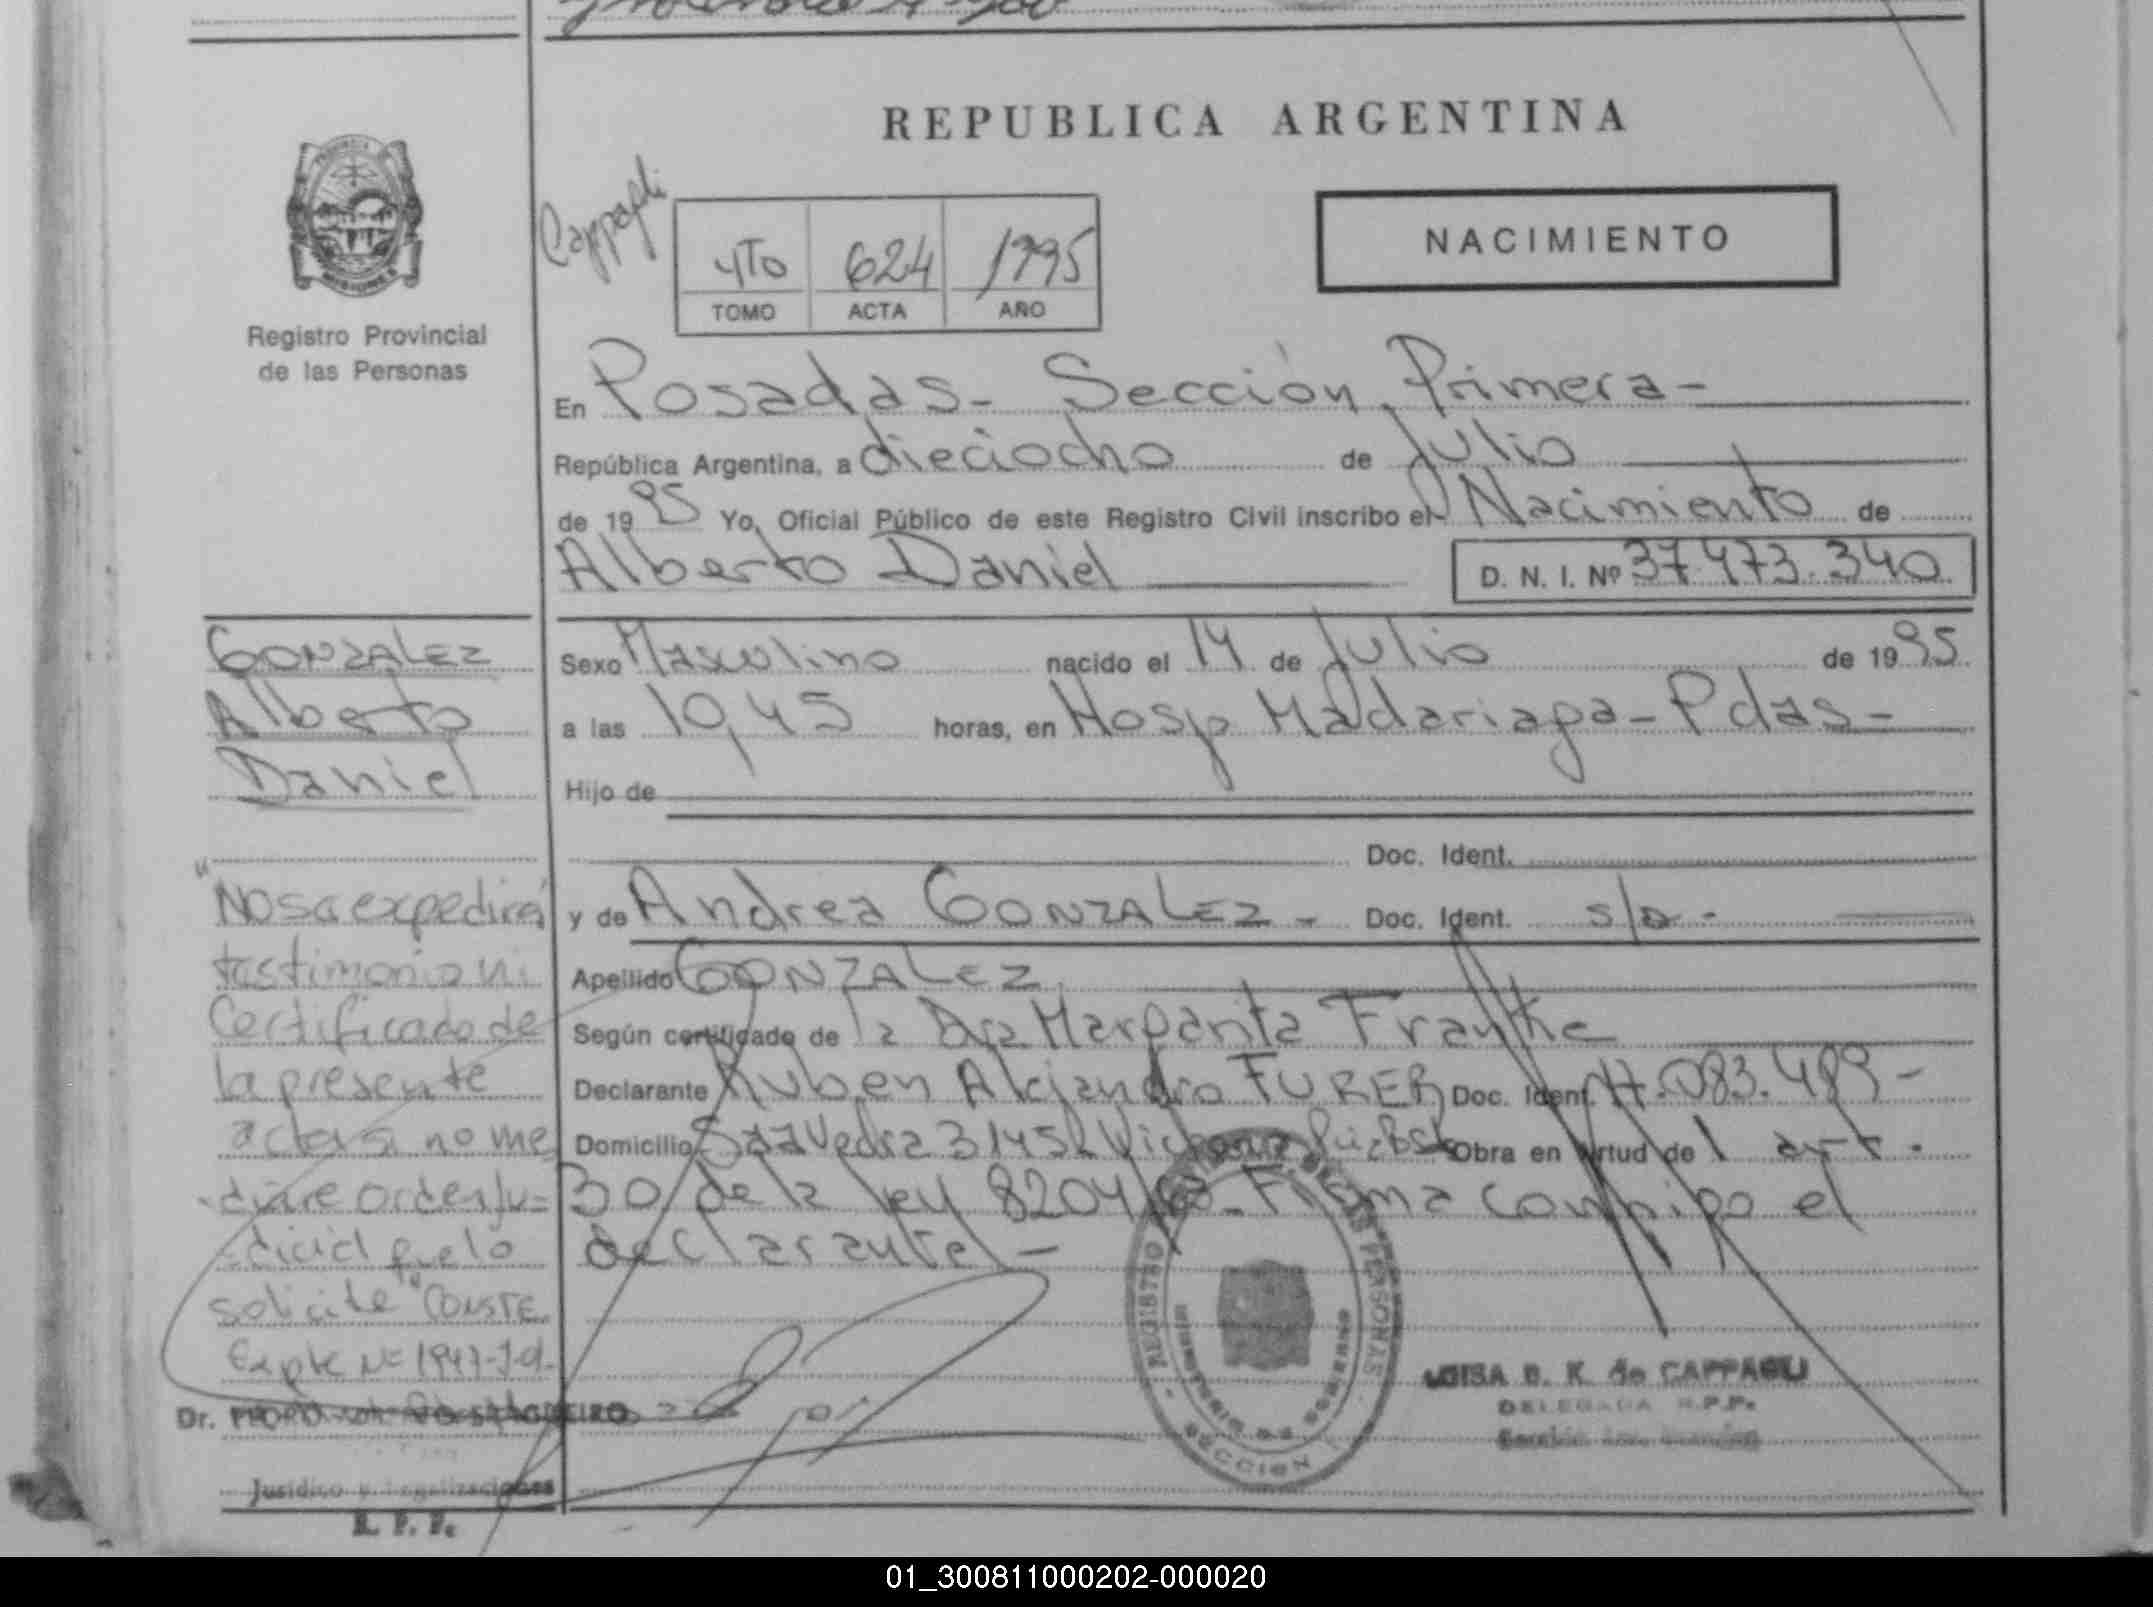 REPUBLICA ARGENTINA
Cappagli
4To 624 1995
TOMO ACTA AÑO
NACIMIENTO
Registro Provincial
de las Personas
En Posadas - Sección Primera -
República Argentina, a dieciocho de Julio
de 1995 Yo, Oficial Público de este Registro Civil inscribo el Nacimiento de
Alberto Daniel D. N. I. Nº 37.473.340
GONZALEZ
Alberto
Daniel
Sexo Masculino nacido el 14 de Julio de 1995
a las 10,45 horas, en Hosp Madariaga - Pdas -
Hijo de
Doc. Ident.
y de Andrea GONZALEZ - Doc. Ident. s/d -
Apellido GONZALEZ
Según certificado de la Dra Margarita
Declarante Ruben Alejandro FURER Doc. Ident. 083.489 -
Domicilio Saavedra Obra en virtud del art.
30 de la ley 8204/ - Firma conmigo el
declarante -
"No se expedirá
testimonio ni
Certificado de
la presente
acta si no me
diare orden Ju=
dicial que lo
solicite" CONSTE.
Expte Nº
Dr.
Jurídico y Legalizaciones
R. P. P.
REGISTRO DE LAS PERSONAS
SECCION
LUISA B. K. de CAPPAGLI
DELEGADA R.P.P.
01_300811000202-000020